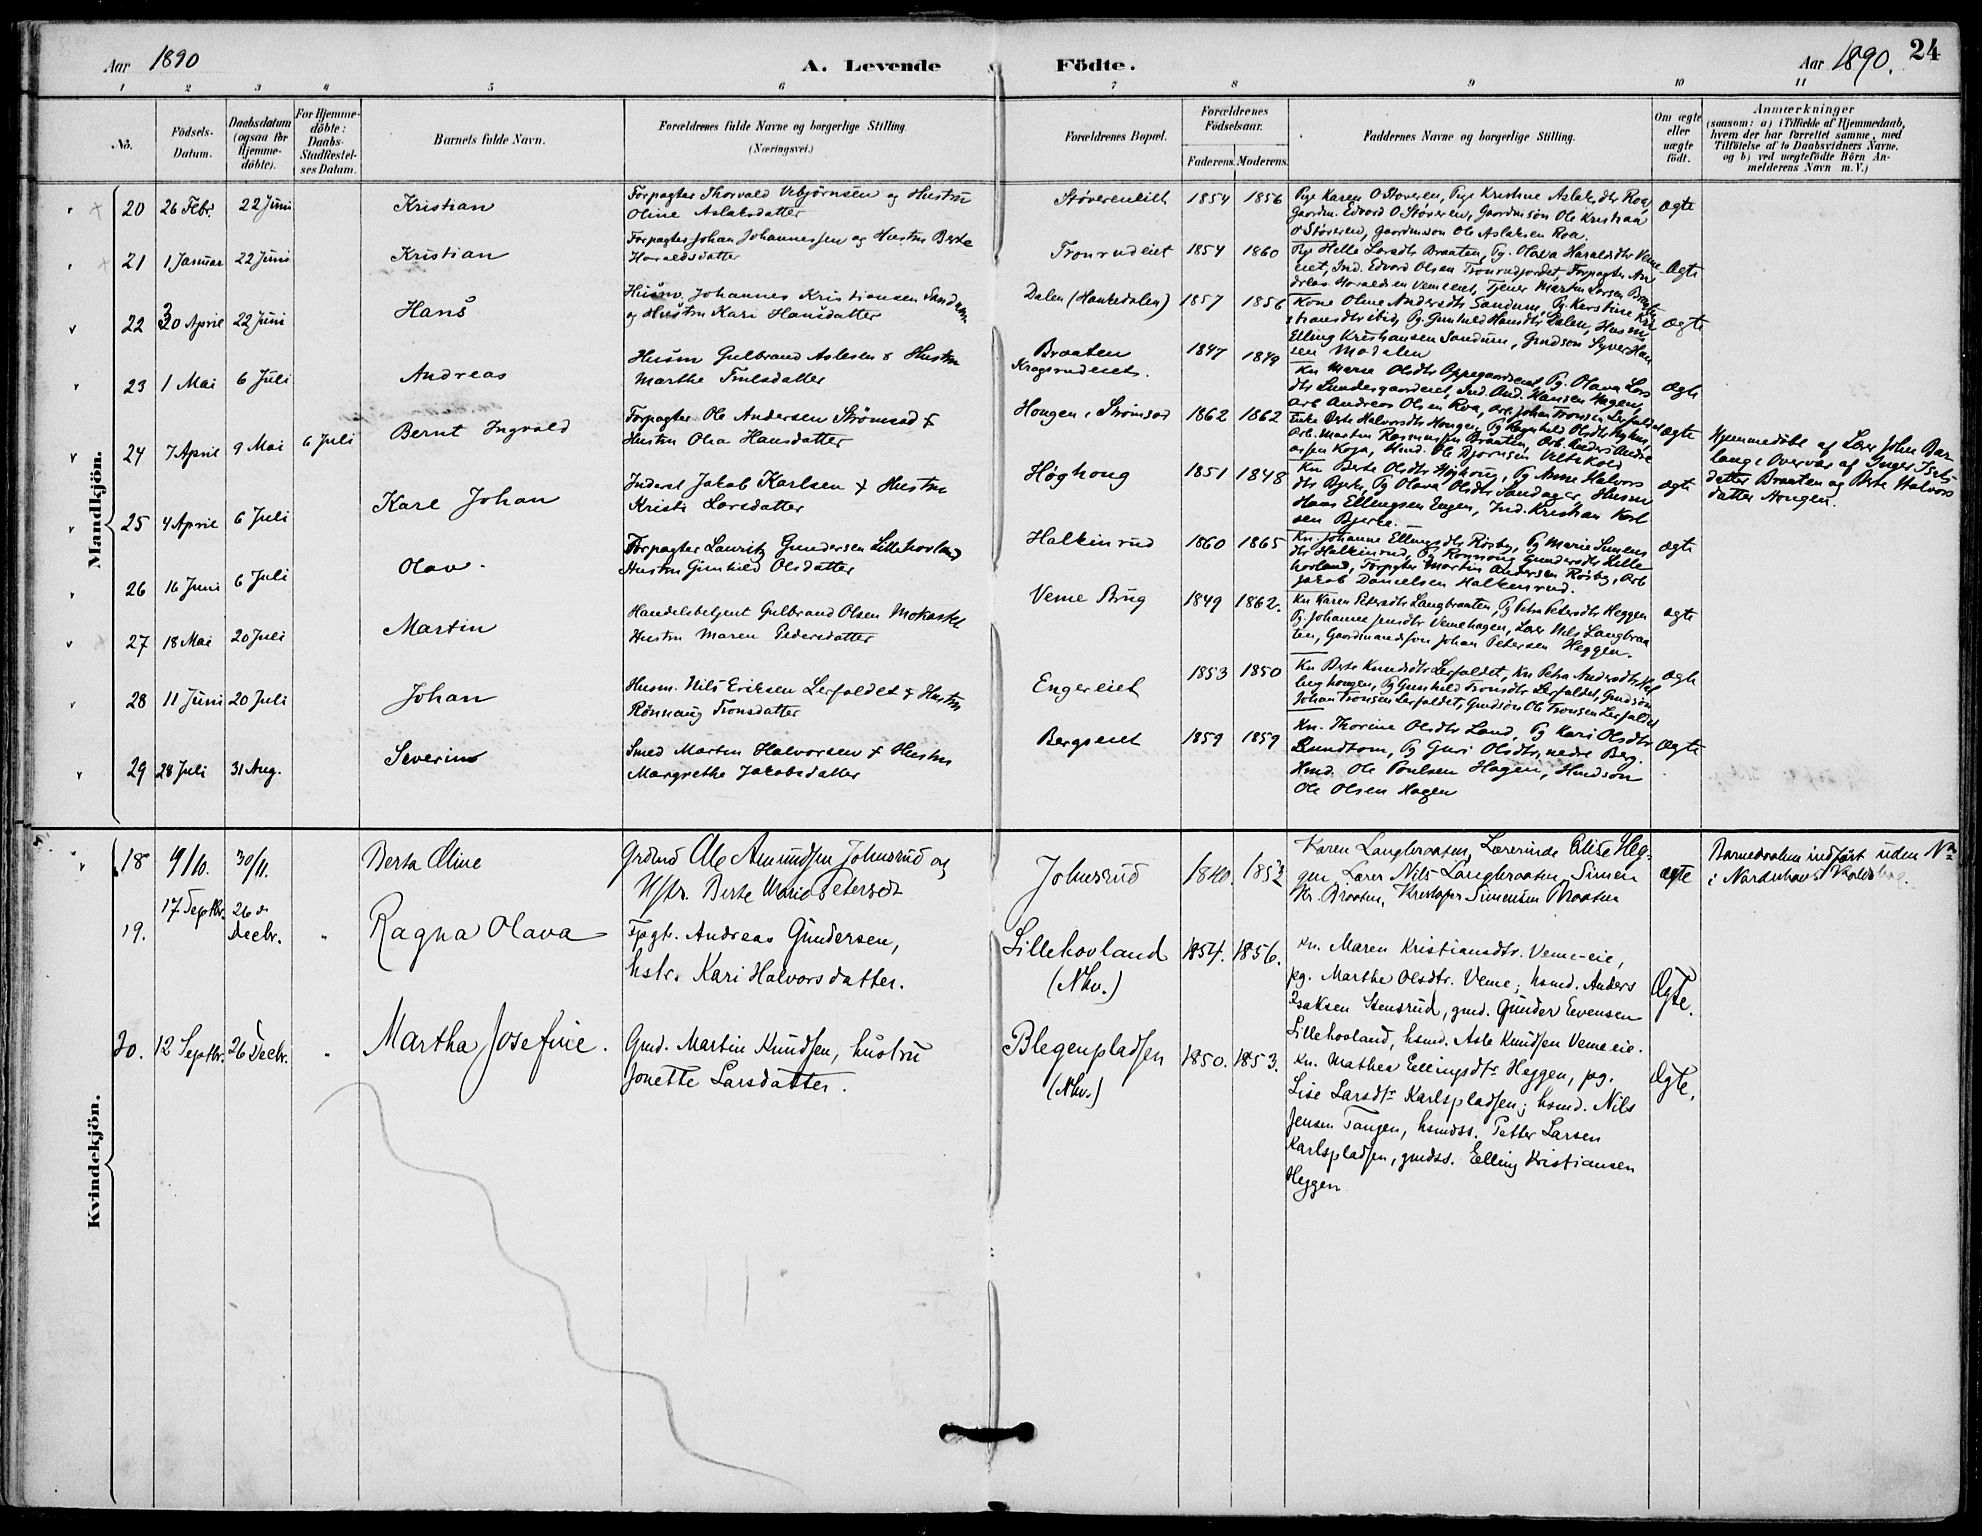 Aar 1890
A. Levende Födte.
Aar 1890. 24
1 2 3 4 5 6 7 8 9 10 11
No.
Födsels-Datum.
Daabsdatum (ogsaa for Hjemme-döbte).
For Hjemme-döbte: Daabs-Stadfæstel-ses Datum.
Barnets fulde Navn.
Forældrenes fulde Navne og borgerlige Stilling.
(Næringsvei.)
Forældrenes Bopæl.
Forældrenes Födselsaar.
Faderens. Moderens.
Faddernes Navne og borgerlige Stilling.
Om ægte eller uægte födt.
Anmærkninger
(saasom: a) i Tilfælde af Hjemmedaab,
hvem der har forrettet samme, med
Tilföielse af to Daabsvidners Navne.
og b) ved uegtefödte Börn An-
melderens Navn m. V.)
Mandkjön.
20 26 Febr. 22 Juni Kristian
Forpagter Thorvald Vebjørnsen og Hustru
Oline Aslaksdatter
Støvereneiet 1854 1856
Pige Karen O Støveren, Pige Kristine Aslaksdtr Roa,
Gaardm. Edvard O Støveren, Gaardmsøn Ole Kristian
O Støveren, Gaardmson Ole Aslaksen Roa.
Ægte
21 1 Januar 22 Juni Kristian
Forpagter Johan Johannessen og Hustru Berte
Haraldsdatter
Tronrudeiet 1854 1860
Pige Helle Larsdtr Braaten, Pg. Olava Haraldsdtr Veme
eiet, Ind. Edvard Olsen Tronrudjordet, Forpagter An
dreas Haraldsen Vemeeiet, Tjener Martin Larsen Braaten
Ægte
22 30 April 22 Juni Hans
Husm. Johannes Kristiansen Sandum
og Hustru Kari Hansdatter
Dalen (Hankedalen) 1857 1856
Kone Oline Andersdtr Sandum, Pg Kerstine Kri
stiansdtr ibid, Pg. Gunhild Hansdtr Dalen, Husm
Elling Kristiansen Sandum, Gmdson Syver Han
sen Modalen
Ægte
23 1 Mai 6 Juli Andreas
Husm Gulbrand Aslesen & Hustru
Marthe Truls​datter
Braaten
Kragsrudeiet. 1847 1849
Kn Marie Olsdtr Oppegaardeiet, Pg. Olava Lars
dtr Lundesgaardeiet, Ind. And. Hansen Hagen,
Arb Andreas Olsen Roa, Arb. Johan Tronsen Lerfaldet
Ægte
24 7 April 9 Mai 6 Juli Bernt Ingvald
Forpagter Ole Andersen Strømsod &
Hustru Olia Hansdatter
Hongen i Strømsod 1862 1862
Enke Berte Halvorsdtr Hongen, Pg Ragnhild Olsdtr Rykin,
Arb. Martin Rasmussen Braaten, Arb. Anders Andre
assen Koja, Hmd. Ole Bjørnsen Veltekold
Ægte
Hjemmedöbt af Lær John Bar-
lang i Overvær af Inger Isaks-
datter Braaten og Berte Halvors
datter Hongen.
25 4 April 6 Juli Karl Johan
Inderst Jakob Karlsen & Hustru
Kristi Larsdatter
Høghong 1851 1848
Kn Berte Olsdtr Høghong, Pg Anne Halvors
dtr Bjerke, Pg Olava Olsdtr Sandager, Husm
Hans Ellingsen Engen, Ind. Kristian Karl
sen Bjerke.
Ægte
26 16 Juni 6 Juli Olav.
Forpagter Lauritz Gundersen Lillehovland
Hustru Gunhild Olsdatter
Halkinrud 1860 1865
Kn. Johanne Ellingsdtr Røsby, Pg Marie Simens
dtr Halkinrud, Pg Rønnaug Gundersdtr Lille
hovland, Forpagter Martin Andersen Røsby, Arb
Jakob Danielsen Halkinrud.
Ægte
27 18 Mai 20 Juli Martin
Handelsbetjent Gulbrand Olsen Mokastet
Hustru Maren Pedersdatter
Veme Brug 1849 1862.
Kn Karen Petersdtr Langbraaten, Pg Petra Petersdtr Heggen
Pg. Johanne Jensdtr Vemehagen, Lær Nils Langbraa
ten, Gaardmandsøn Johan Petersen Heggen.
Ægte
28 11 Juni 20 Juli Johan
Husm. Nils Eriksen Lerfaldet & Hustru
Rønnaug Tronsdatter
Engereiet 1853 1850
Kn Berte Knudsdtr Lerfaldet, Kn Petra Andersdtr Hal
linghongen, Pg Gunhild Tronsdtr Lerfaldet, Gmdsøn
Johan Tronsen Lerfaldet, Gmdsøn Ole Tronsen Lerfaldet
Ægte
29 28 Juli 31 Aug. Severin
Smed Martin Halvorsen & Hustru
Margrethe Jakobsdatter
Bergseiet 1859 1859
Kn. Thorine Olsdtr Lund, Pg Kari Olsdtr
Rundtom, Pg Guri Olsdtr, nedre Berg.
Hmd. Ole Poulsen Hagen, Hmdson
Ole Olsen Hagen
Ægte
Kvindekjön.
18 9/10. 30/11. Berta Oline
Grdmd Ole Amundsen Johnsrud og
Hstr. Berte Marie Petersdt
Johnsrud 1840. 1852
Karen Langbraaten, Lærerinde Elise Heg-
gen, Lærer Nils Langbraaten, Simen
Kr. Braaten, Kristofer Simensen Braaten
ægte
Barnedaaben indført uden No
i Norderhovs Kaldsbog.
19. 17 Septbr. 26 Decbr. " Ragna Olava
Fpgt. Andreas Gundersen,
hstr. Kari Halvorsdatter.
Lillehovland
(Nhv.) 1854. 1856.
Kn. Maren Kristiansdtr. Veme-eie,
pg. Marthe Olsdtr. Veme; hsmd. Anders
Isaksen Stensrud, gmd. Gunder Evensen
Lillehovland, hsmd. Asle Knudsen Veme-eie.
Ægte.
20. 12 Septbr. 26 Decbr. " Martha Josefine.
Gmd. Martin Knudsen, hustru
Jonette Larsdatter.
Blegenpladsen
(Nhv.) 1850. 1853.
Kn. Mathea Ellingsdtr Heggen, pg.
Lise Larsdtr Karlspladsen; hsmd. Nils
Jensen Tangen, hsmdss. Petter Larsen
Karlspladsen, gmdss. Elling Kristiansen
Heggen
Ægte.